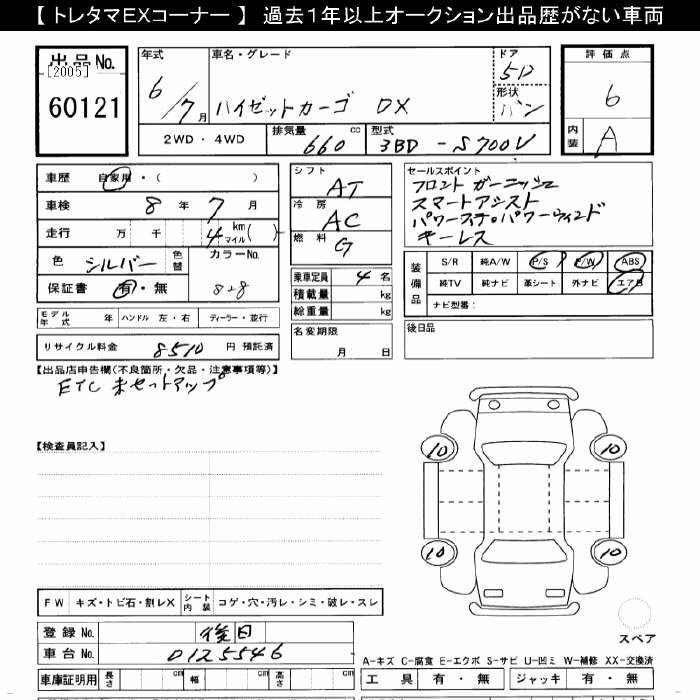 【 トレタマEXコーナー 】 過去１年以上オークション出品歴がない車両
出品No. [2005] 60121
年式 6/7月
車名・グレード ハイゼットカーゴ DX
ドア 5D
形状 バン
2WD ・ 4WD
排気量 660 cc
型式 3BD-S700V
評価点 6
内装 A
車歴 自家用 ・ ( )
車検 8 年 7 月
走行 万 千 4 km マイル ( )
色 シルバー 色替 カラーNo. S28
保証書 有・無
モデル年式 年 ハンドル 左・右 ディーラー・並行
リサイクル料金 8510 円 預託済
シフト AT
冷房 AC
燃料 G
乗車定員 4 名
積載量 kg
総重量 kg
名変期限 月 日
セールスポイント
フロント ガーニッシュ
スマートアシスト
パワーステ・パワーウィンド
キーレス
装備品 S/R 純A/W P/S P/W ABS
純TV 純ナビ 革シート 外ナビ エアB
ナビ型番：
後日品
【出品店申告欄(不良箇所・欠品・注意事項等)】
ETC 未セットアップ
【検査員記入】
10 10
10 10
スペア
FW キズ・トビ石・割レX シート内装 コゲ・穴・汚レ・シミ・破レ・スレ
登録No. 後日
車台No. 0125546
車庫証明用 長さ cm 幅 cm 高さ cm
A-キズ C-腐食 E-エクボ S-サビ U-凹ミ W-補修 XX-交換済
工具 有・無 ジャッキ 有・無